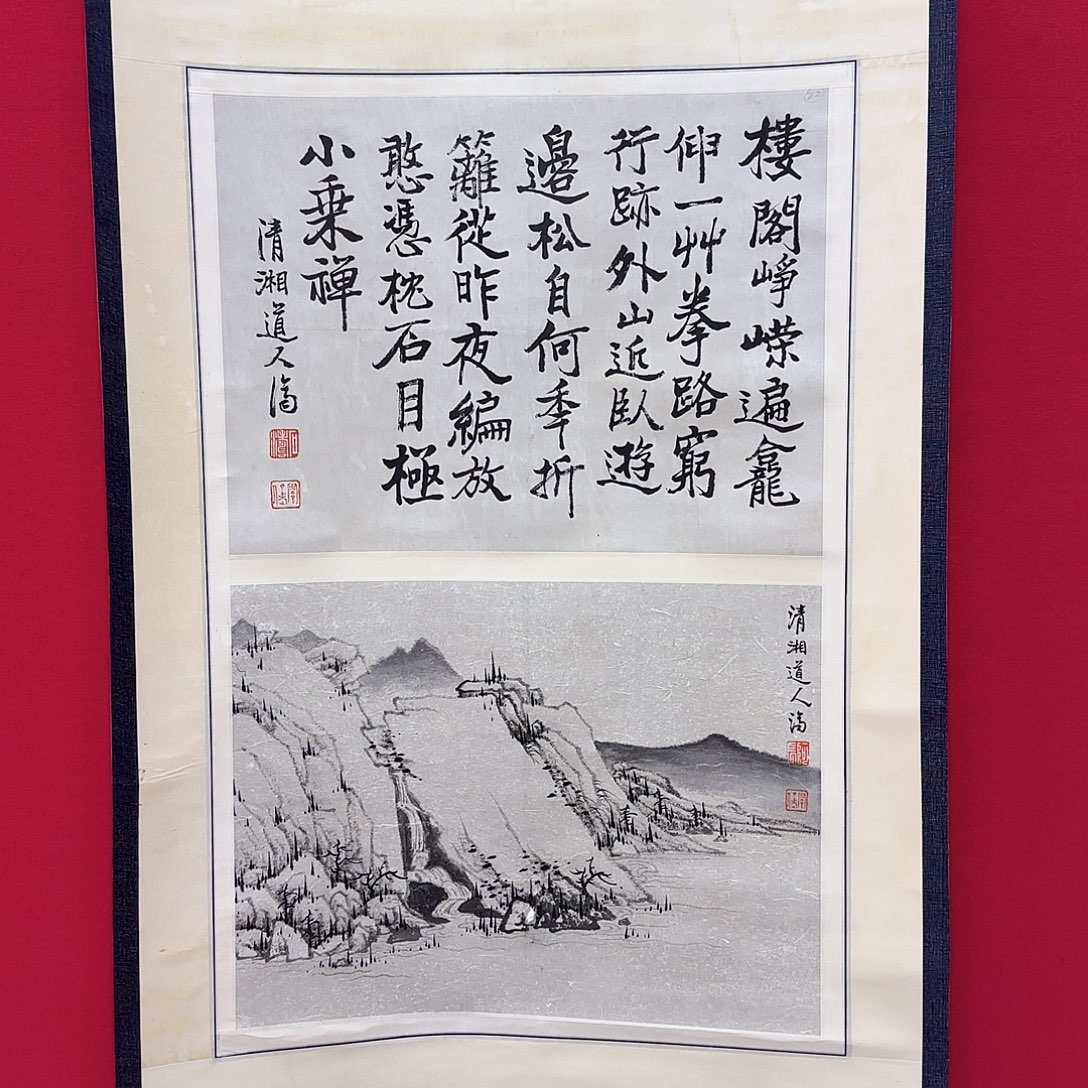 樓閣崢嶸遍龕
仰一艸拳路窮
行跡外山近臥遊
邊松自何秊折
籬從昨夜編放
憨憑枕石目極
小乗禪
清湘道人濟
石濤
清湘道人濟